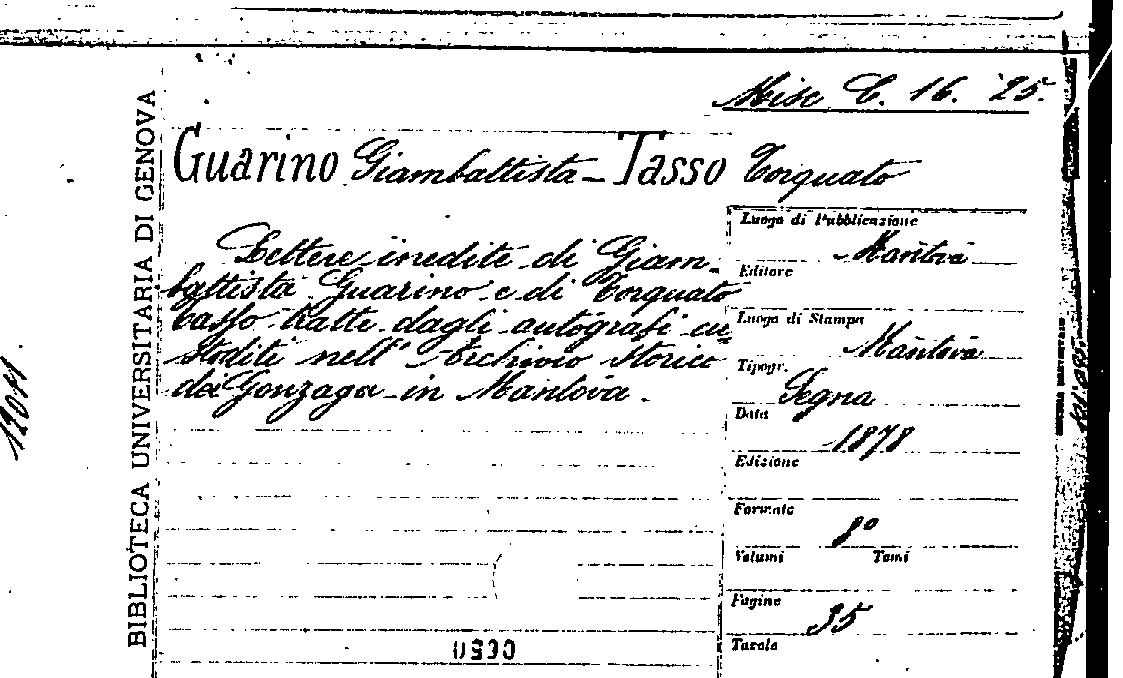 Misc C. 16. 25.
BIBLIOTECA UNIVERSITARIA DI GENOVA
Guarino Giambattista - Tasso Torquato
Lettere inedite di Giam-
battista Guarino e di Torquato
Tasso tratte dagli autografi cu-
stoditi nell' Archivio Storico
dei Gonzaga in Mantova.
Luogo di Pubblicazione
Mantova
Editore
Luogo di Stampa
Mantova
Tipogr.
Segna
Data
1878
Edizione
Formato
8°
Volumi Tomi
Pagine
35
Tavole